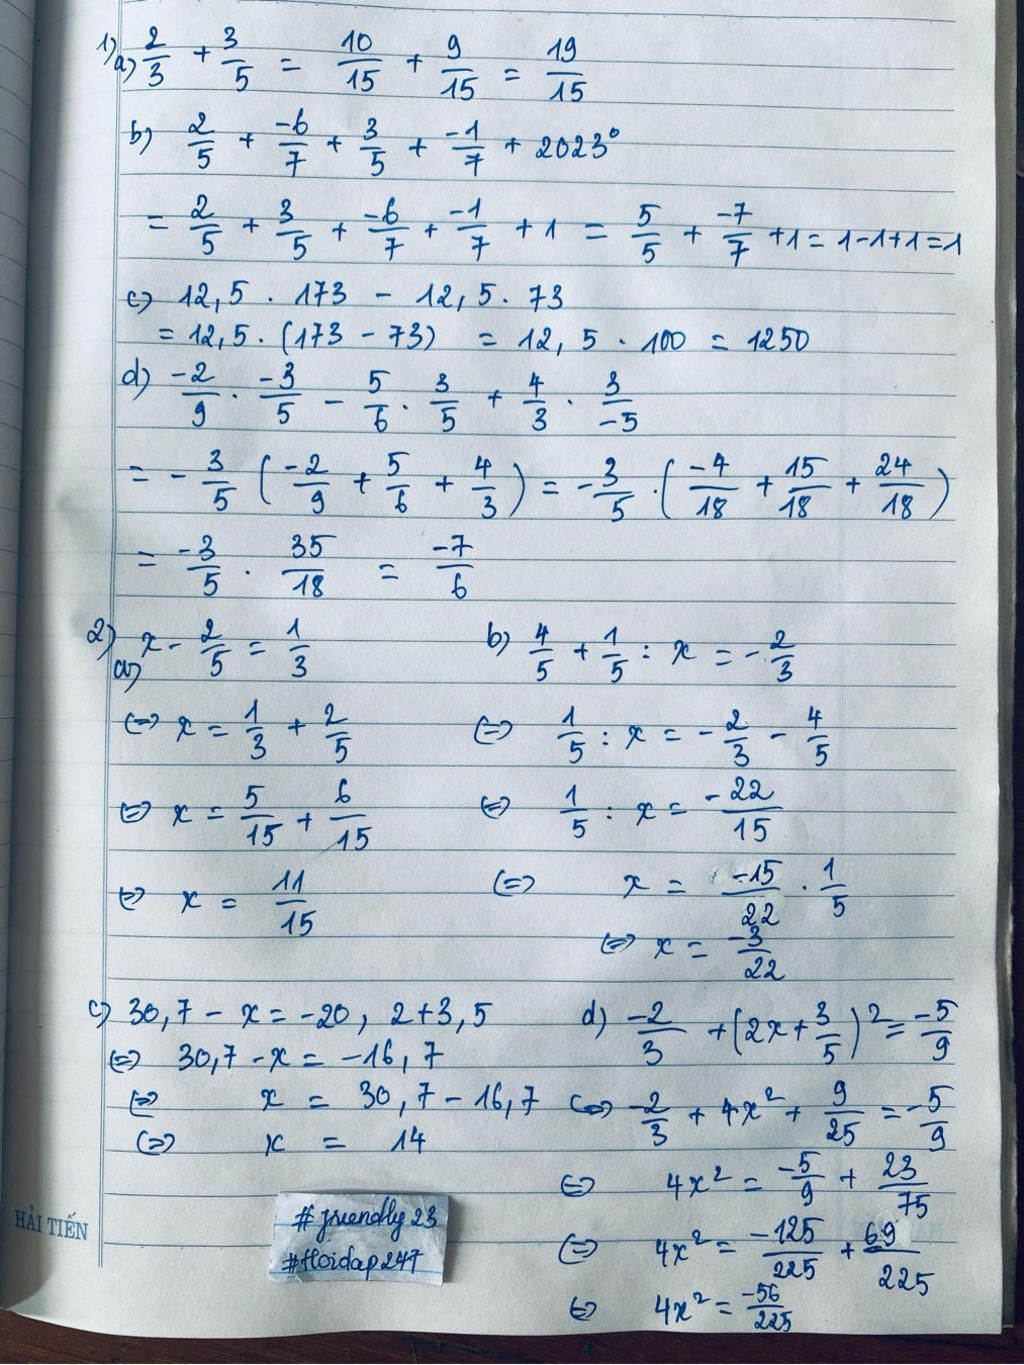 1) a) 2/3 + 3/5 = 10/15 + 9/15 = 19/15
b) 2/5 + -6/7 + 3/5 + -1/7 + 2023⁰
= 2/5 + 3/5 + -6/7 + -1/7 + 1 = 5/5 + -7/7 + 1 = 1 - 1 + 1 = 1
c) 12,5 . 173 - 12,5 . 73
= 12,5 . (173 - 73) = 12,5 . 100 = 1250
d) -2/9 . -3/5 - 5/6 . 3/5 + 4/3 . 3/-5
= - 3/5 (-2/9 + 5/6 + 4/3) = - 3/5 . (-4/18 + 15/18 + 24/18)
= -3/5 . 35/18 = -7/6
2) a) x - 2/5 = 1/3
⇔ x = 1/3 + 2/5
⇔ x = 5/15 + 6/15
⇔ x = 11/15
b) 4/5 + 1/5 : x = - 2/3
⇔ 1/5 : x = - 2/3 - 4/5
⇔ 1/5 : x = -22/15
⇔ x = -15/22 . 1/5
⇔ x = -3/22
c) 30,7 - x = -20,2 + 3,5
⇔ 30,7 - x = -16,7
⇔ x = 30,7 - 16,7
⇔ x = 14
d) -2/3 + (2x + 3/5)² = -5/9
⇔ -2/3 + 4x² + 9/25 = -5/9
⇔ 4x² = -5/9 + 23/75
⇔ 4x² = -125/225 + 69/225
⇔ 4x² = -56/225
# friendly23
#Hoidap247
HẢI TIẾN